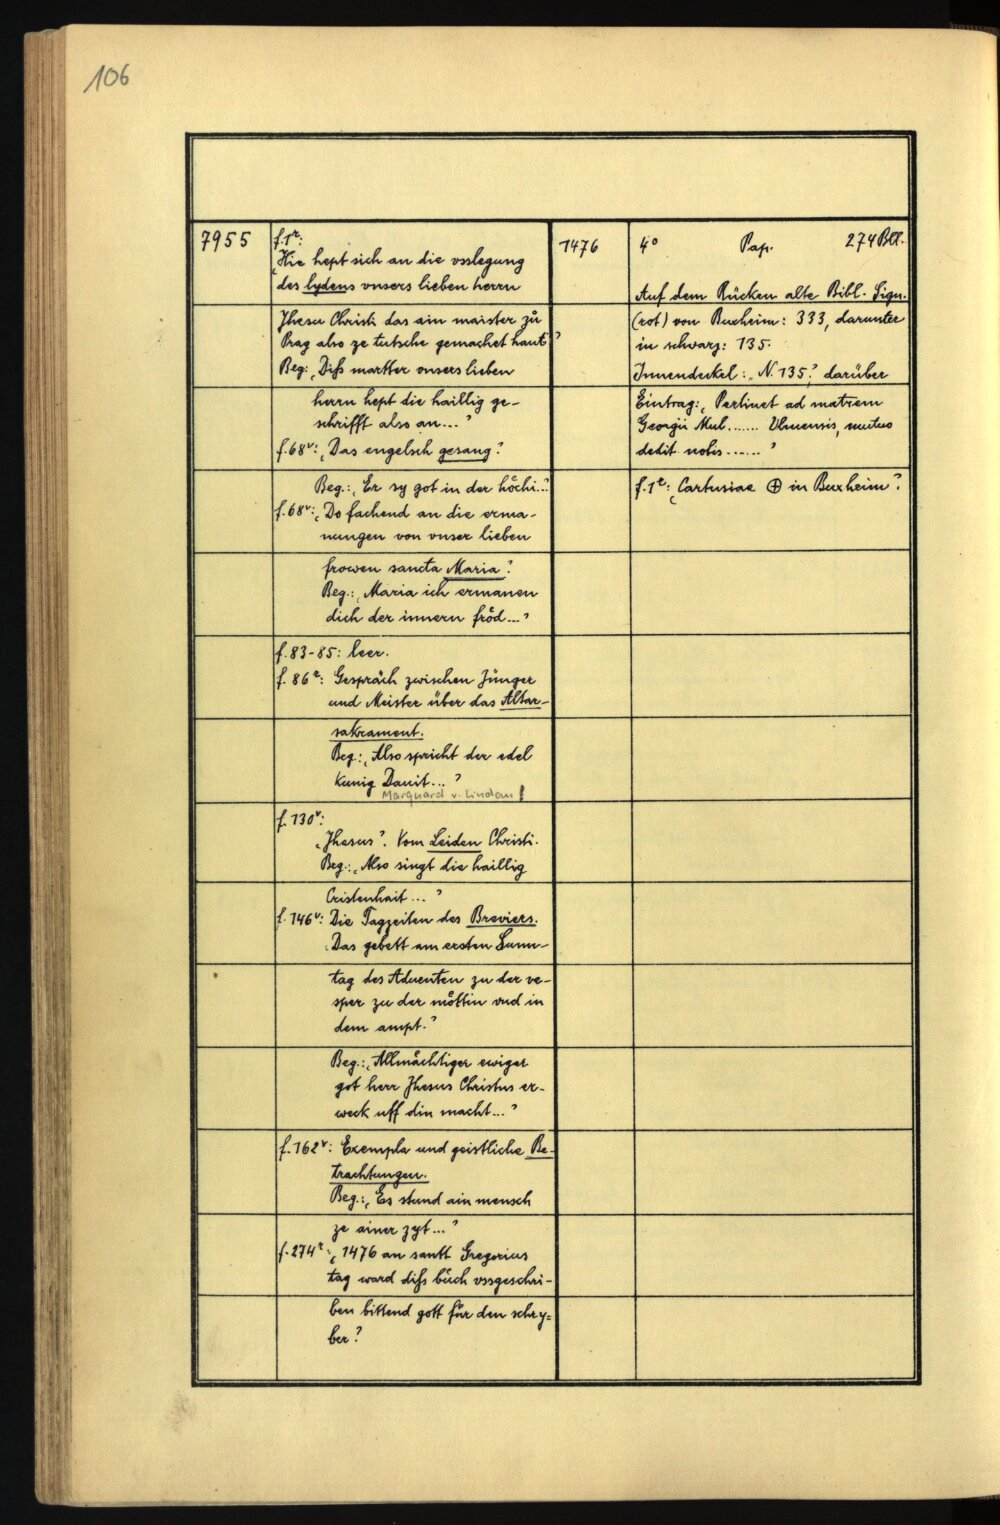 106
7955
f.1r:
„Hie hept sich an die vsslegung
des lydens vnsers lieben herrn
Jhesu Christi das ain maister zů
Prag also ze tutsche gemachet haut“
Beg: „Diss martter vnsers lieben
herrn hept die haillig ge-
schrifft also an...“
f.68v: „Das engelsch gesang“.
Beg.: „Er sy got in der höchi...“
f.68v: „Do fachend an die erma-
nungen von vnser lieben
frowen sancta Maria“.
Beg.: „Maria ich ermanen
dich der innern fröd...“
f.83-85: leer.
f.86r: Gespräch zwischen Jünger
und Meister über das Altar-
sakrament.
Beg.: „Also spricht der edel
kunig Dauit...“
Marquard v. Lindau!
f.130v:
„Jhesus“. Vom Leiden Christi.
Beg.: „Also singt die haillig
Cristenhait...“
f.146v: Die Tagzeiten des Breviers.
„Das gebett am ersten Sunn-
tag des Aduenten zu der ve-
sper zu der möttin vnd in
dem ampt.“
Beg.: „Allmächtiger ewiger
got herr Jhesus Christus er-
weck uff din macht...“
f.162v: Exempla und geistliche Be-
trachtungen.
Beg.: „Es stund ain mensch
ze ainer zyt...“
f.274r: „1476 an santt Gregorius
tag ward diss bůch vssgeschri-
ben bittend gott für den schry-
ber“.
1476
4° Pap. 274 Bll.
Auf dem Rücken alte Bibl. Sign.
(rot) von Buxheim: 333, darunter
in schwarz: 135.
Innendeckel: „N. 135“, darüber
Eintrag: „Pertinet ad matrem
Georgii Mul...... Ulmensis, mutuo
dedit nobis......“
f.1r: „Cartusiae ⊕ in Buxheim“.